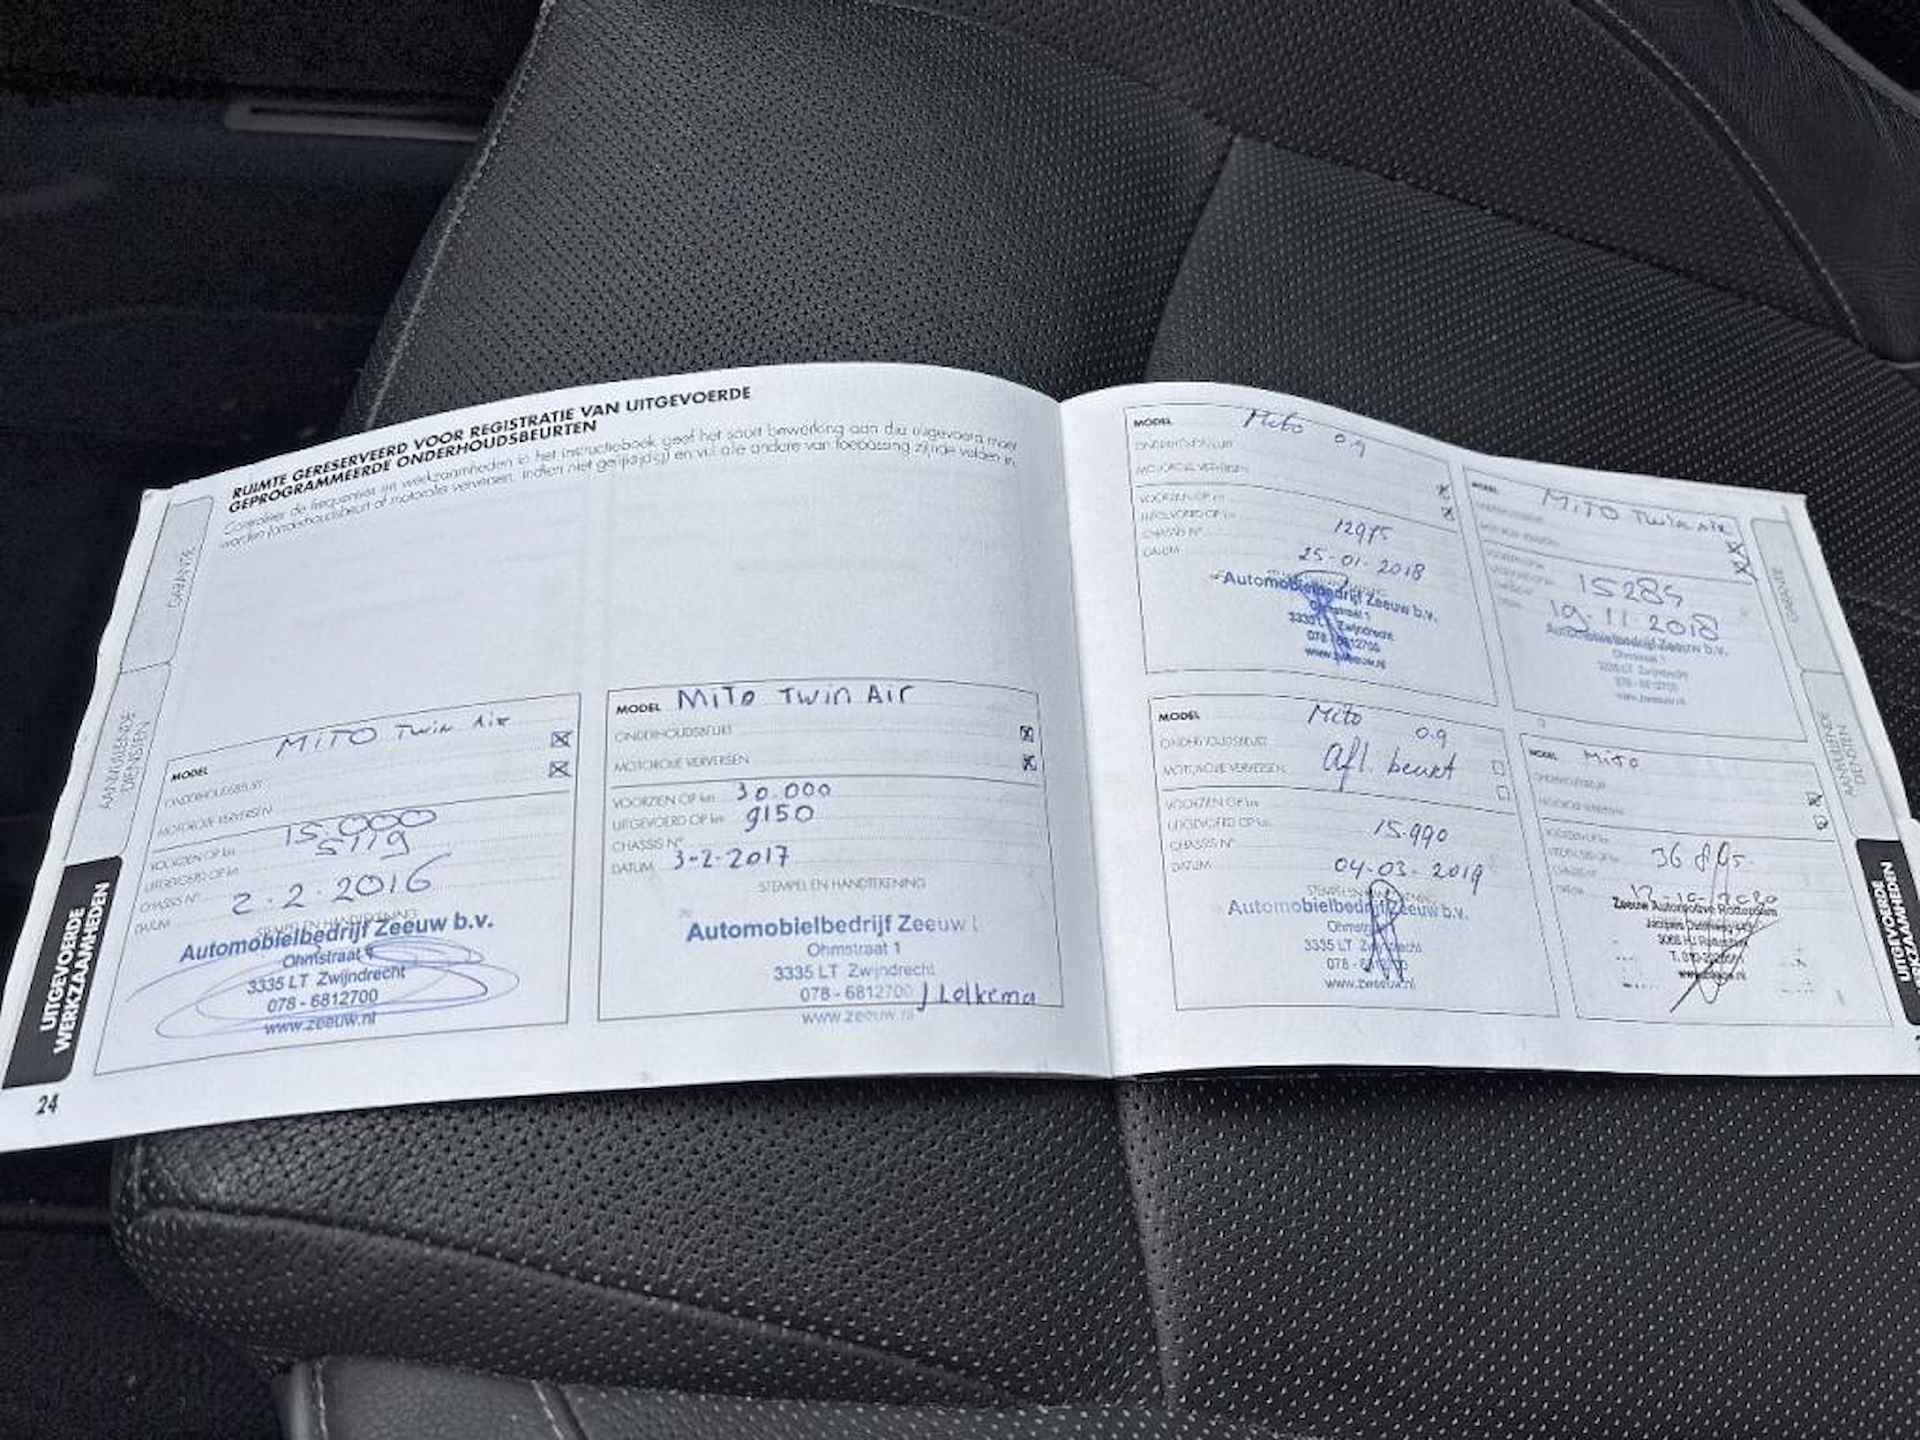 RUIMTE GERESERVEERD VOOR REGISTRATIE VAN UITGEVOERDE
GEPROGRAMMEERDE ONDERHOUDSBEURTEN
Controleer de frequenties en werkzaamheden in het instructieboek, geef het soort bewerking aan die uitgevoerd moet
worden (onderhoudsbeurt of motorolie verversen, indien niet gelijktijdig) en vul alle andere van toepassing zijnde velden in.
GARANTIE
AANVULLENDE
DIENSTEN
UITGEVOERDE
WERKZAAMHEDEN
24
MODEL MITO Twin Air
ONDERHOUDSBEURT
MOTOROLIE VERVERSEN
VOORZIEN OP km 15.000
UITGEVOERD OP km 5119
CHASSIS N°
DATUM 2.2.2016
STEMPEL EN HANDTEKENING
Automobielbedrijf Zeeuw b.v.
Ohmstraat 1
3335 LT Zwijndrecht
078 - 6812700
www.zeeuw.nl
MODEL MITO Twin Air
ONDERHOUDSBEURT
MOTOROLIE VERVERSEN
VOORZIEN OP km 30.000
UITGEVOERD OP km 9150
CHASSIS N°
DATUM 3-2-2017
STEMPEL EN HANDTEKENING
Automobielbedrijf Zeeuw
Ohmstraat 1
3335 LT Zwijndrecht
078 - 6812700 J Lolkema
www.zeeuw.nl
MODEL Mito 0.9
ONDERHOUDSBEURT
MOTOROLIE VERVERSEN
VOORZIEN OP km
UITGEVOERD OP km 12975
CHASSIS N°
DATUM 25-01-2018
Automobielbedrijf Zeeuw b.v.
Ohmstraat 1
3335 LT Zwijndrecht
078 - 6812700
www.zeeuw.nl
MODEL MITO Twin Air
15284
19.11.2018
Automobielbedrijf Zeeuw b.v.
Ohmstraat 1
3335 LT Zwijndrecht
078 - 6812700
www.zeeuw.nl
MODEL Mito 0.9
ONDERHOUDSBEURT Afl. beurt
MOTOROLIE VERVERSEN
VOORZIEN OP km
UITGEVOERD OP km 15.990
CHASSIS N°
DATUM 04-03-2019
STEMPEL EN HANDTEKENING
Automobielbedrijf Zeeuw b.v.
Ohmstraat 1
3335 LT Zwijndrecht
078 - 6812700
www.zeeuw.nl
MODEL MITO
ONDERHOUDSBEURT
MOTOROLIE VERVERSEN
36 895
12-10-2020
Zeeuw Automotive Rotterdam
GARANTIE
AANVULLENDE
DIENSTEN
UITGEVOERDE